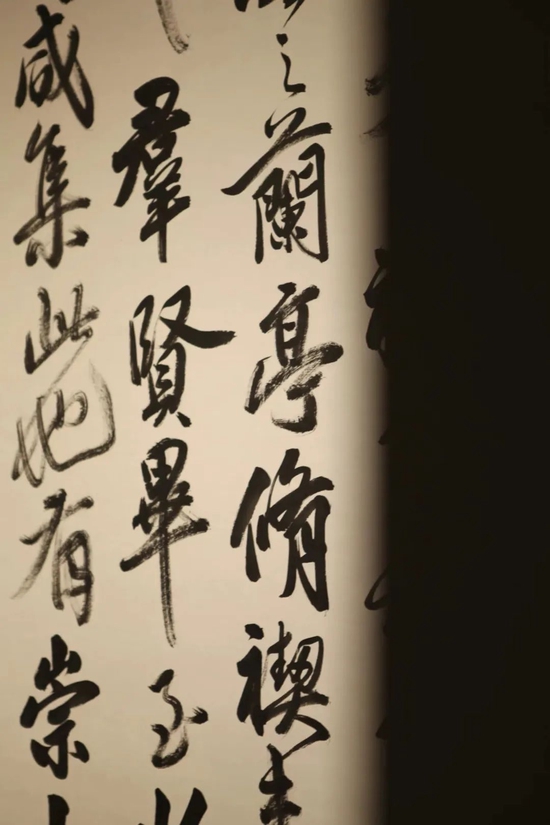 之蘭亭脩禊
羣賢畢至
咸集此地有崇